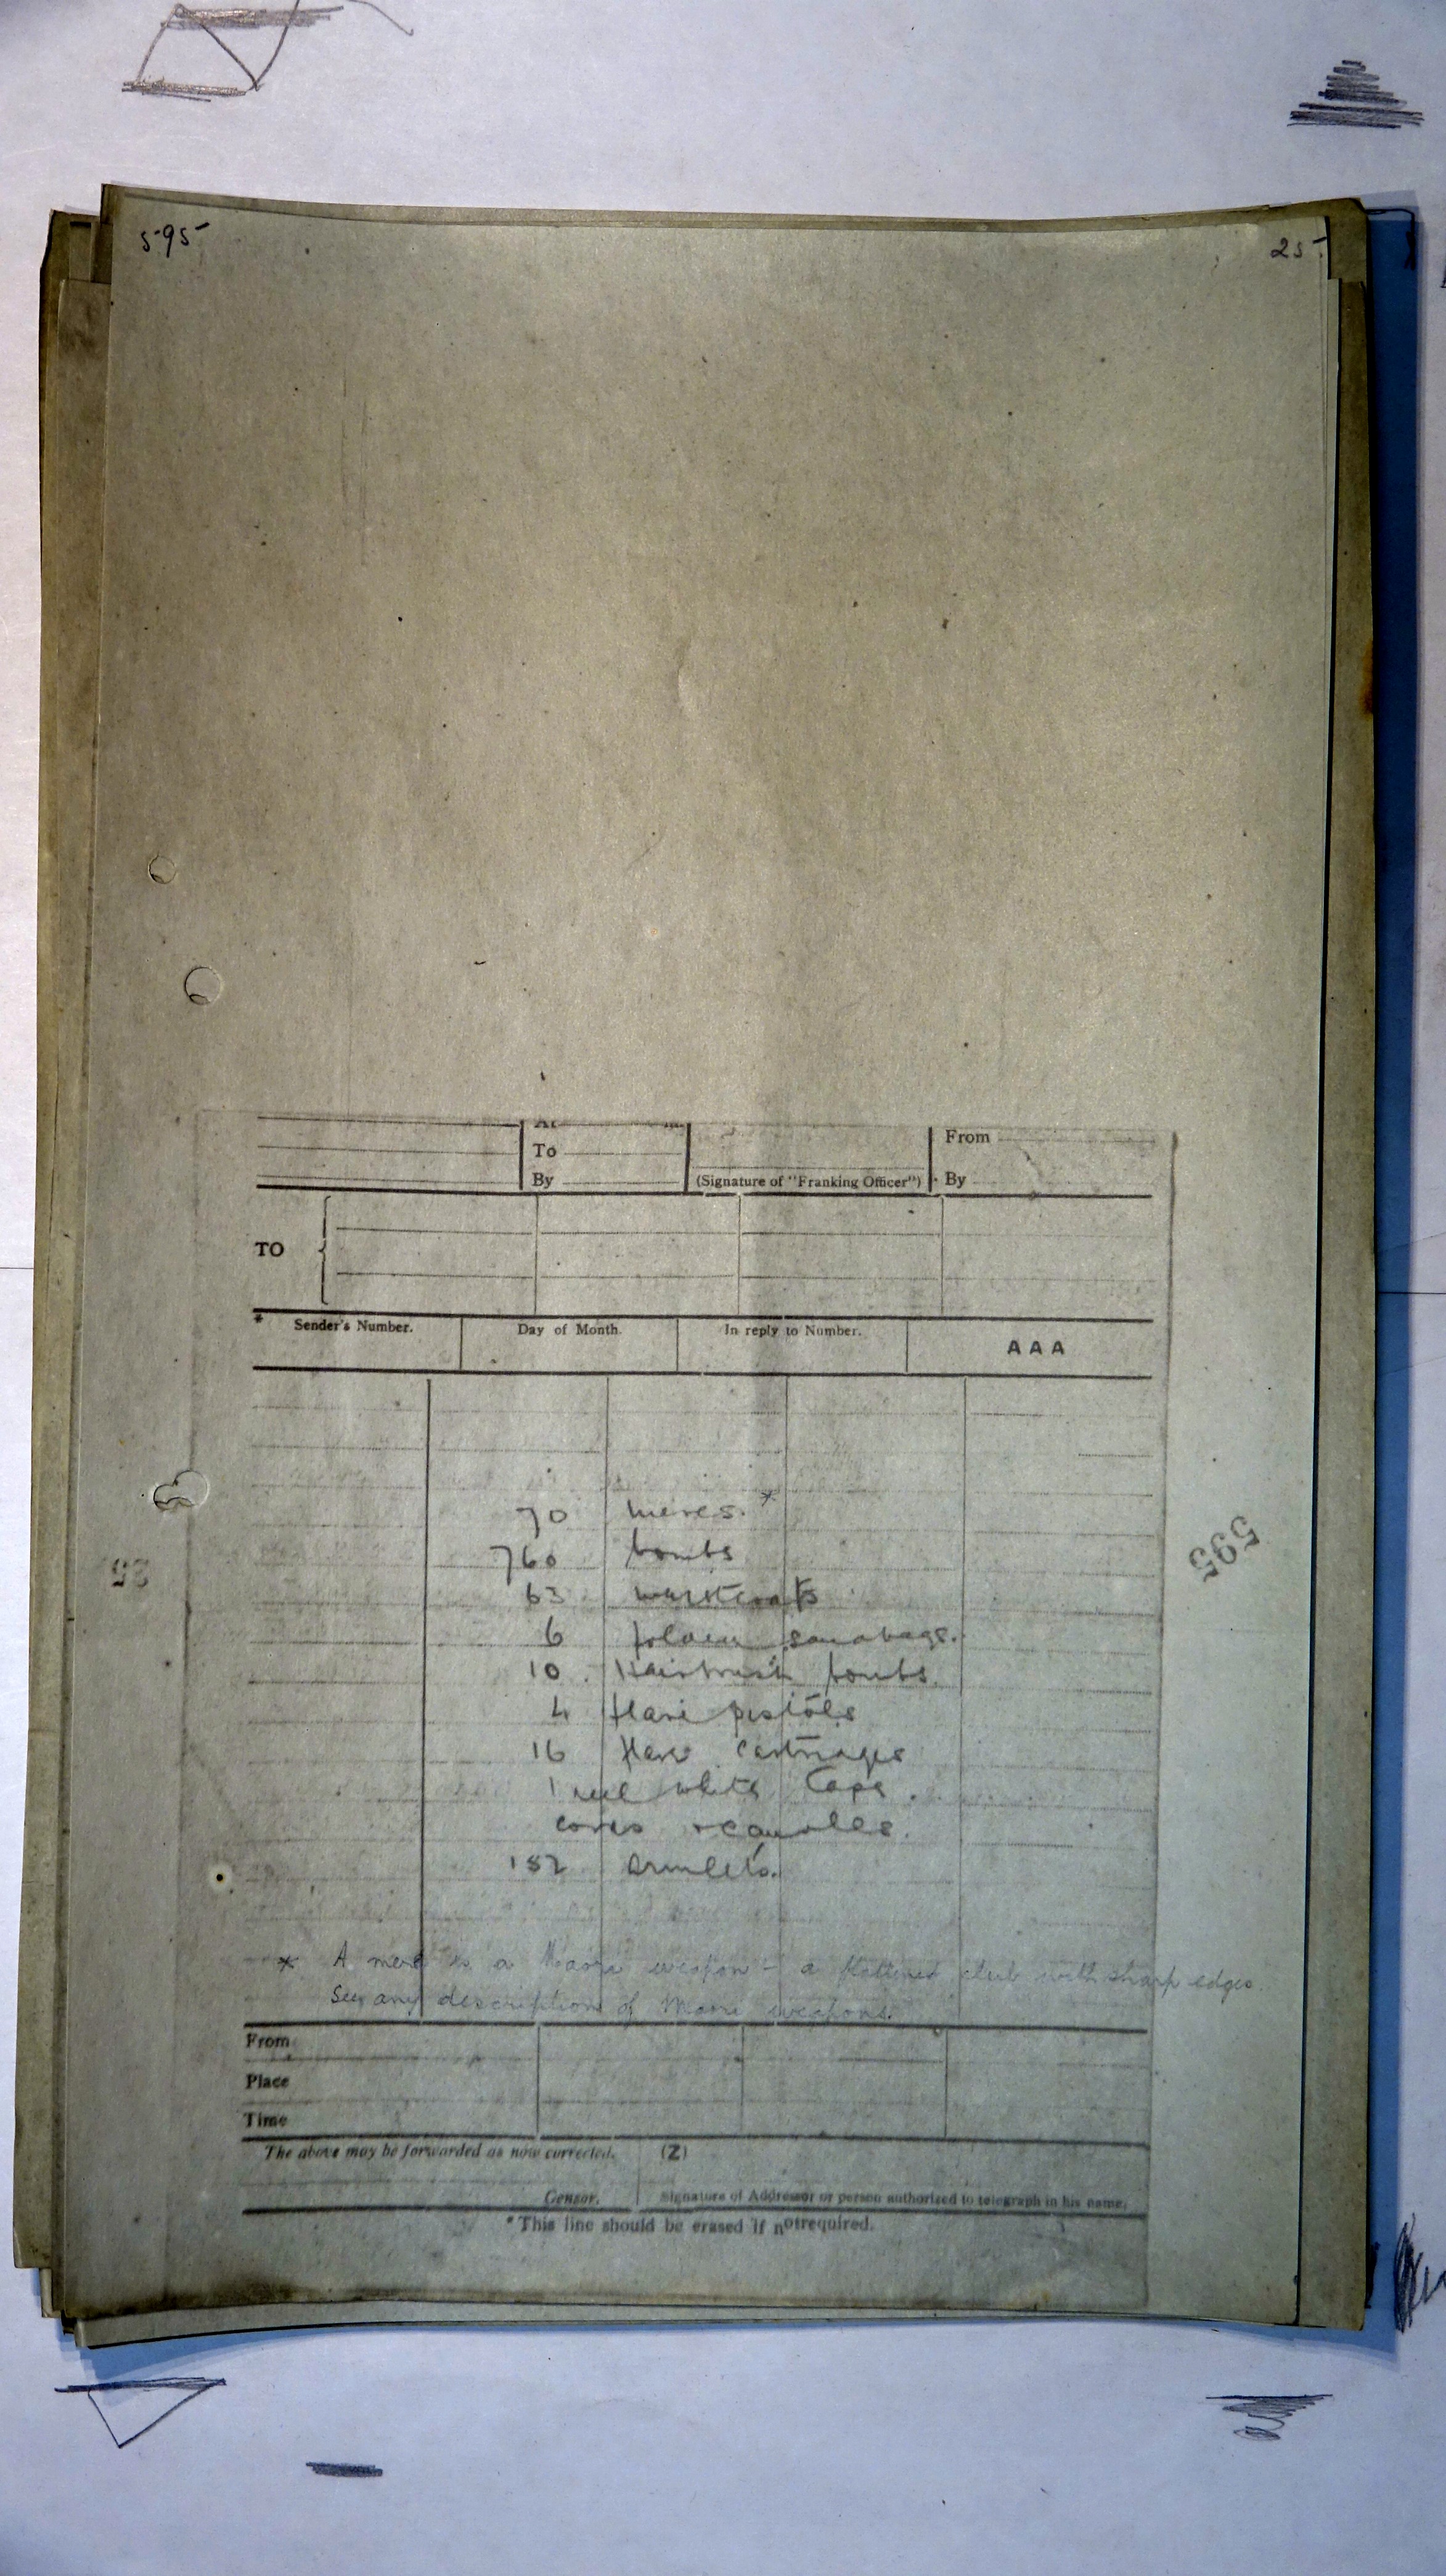 595 25
At m.
To From
By (Signature of "Franking Officer") By
TO
* Sender's Number. Day of Month. In reply to Number. AAA
70 meres. *
760 bombs
63 waistcoats
6 sandbags.
10 Hairbrush bombs.
4 flare pistols
16 flare cartridges
1 reel white tape.
candles.
152 armlets.
595
* A mere is a Maori weapon - a flattened club with sharp edges.
See any description of Maori weapons.
From
Place
Time
The above may be forwarded as now corrected. (Z)
Censor. Signature of Addressor or person authorized to telegraph in his name.
* This line should be erased if not required.